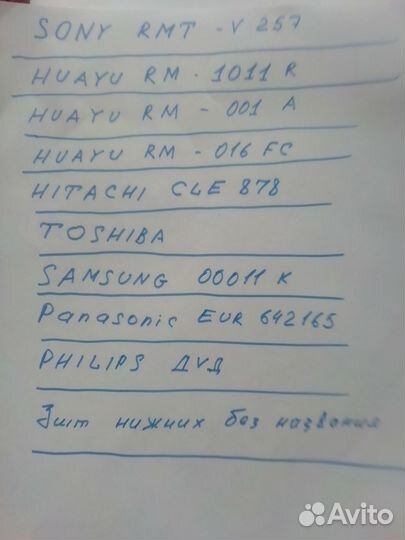 SONY RMT - V 257
HUAYU RM - 1011 R
HUAYU RM - 001 A
HUAYU RM - 016 FC
HITACHI CLE 878
TOSHIBA
SAMSUNG 00011 K
Panasonic EUR 642165
PHILIPS ДУД
3шт нижних без названия
Avito